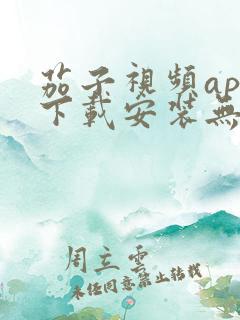 茄子視頻ap
下載安裝無
周立雲
未经同意禁止转载